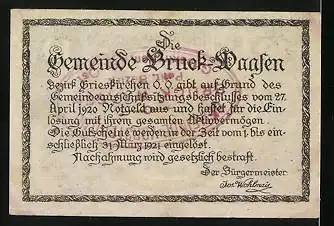 Die
Gemeinde Bruck-Waasen
Bezirk Grieskirchen O.Ö. gibt auf Grund des
Gemeindeausschußsitzungsbeschlusses vom 27.
April 1920 Notgeld aus und haftet für die Ein-
lösung mit ihrem gesamten Aktivvermögen.
Die Gutscheine werden in der Zeit vom 1. bis ein-
schließlich 31. März 1921 eingelöst.
Nachahmung wird gesetzlich bestraft.
Der Bürgermeister
Jos.